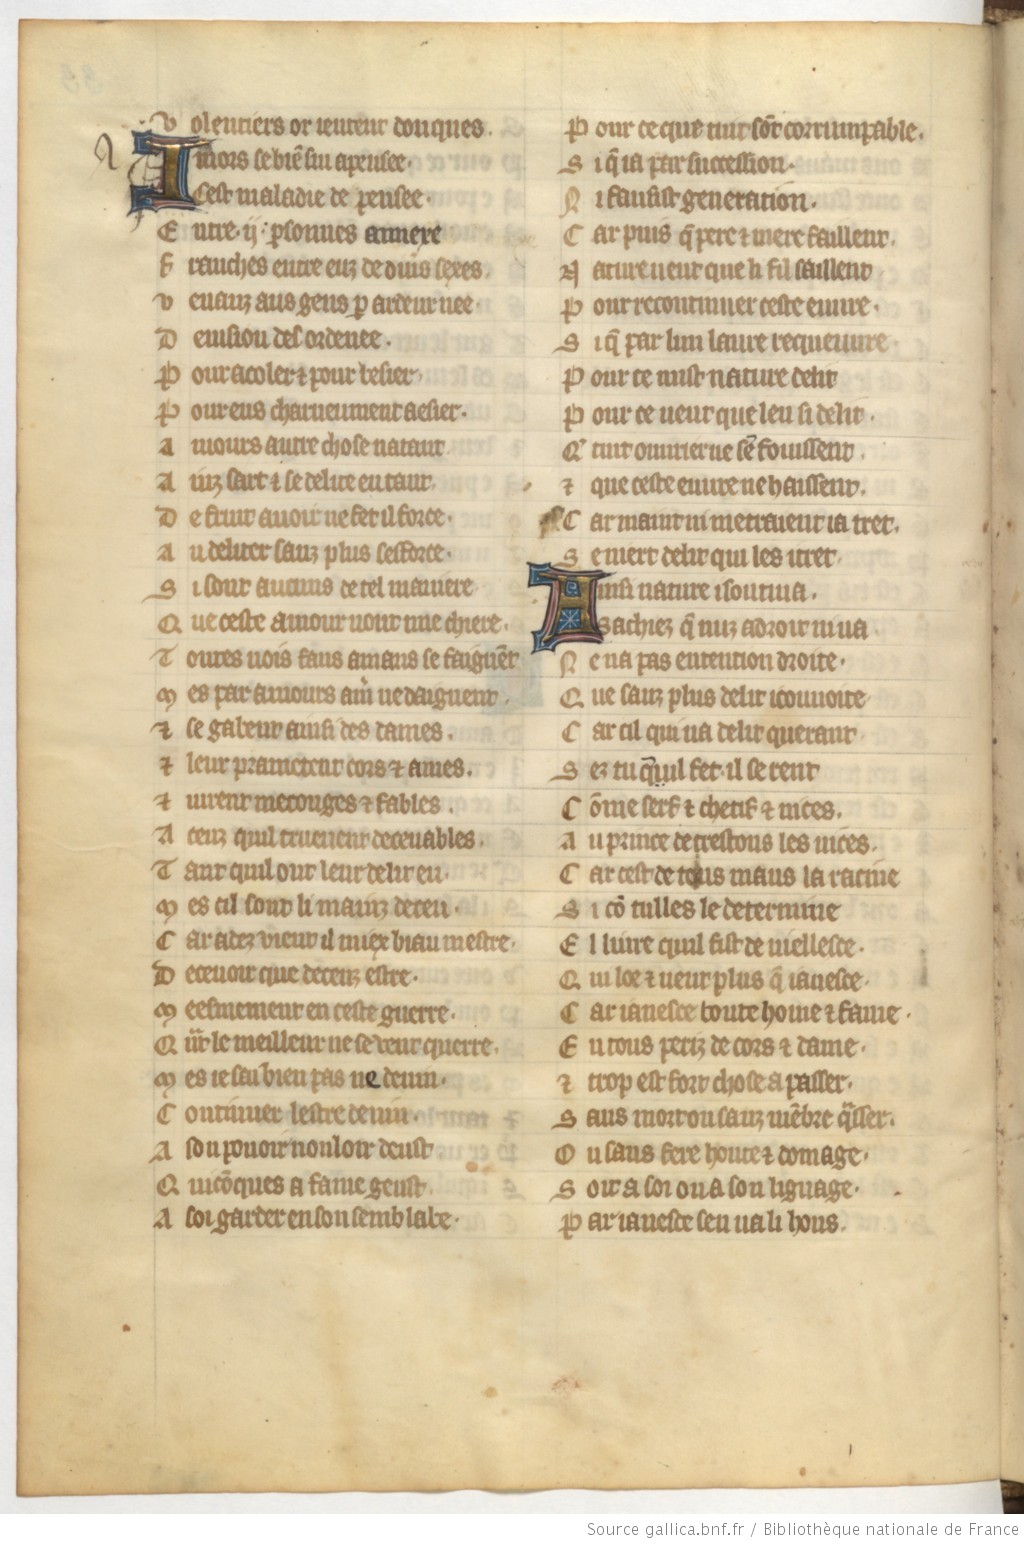 Volentiers or ientent donques.
Imors se biē sui apensee.
Cest maladie de pensee.
Entre .ij. psonnes annexe
Franches entre eus de diuis sexes.
Venanz aus gens p ardeur nee
De uision desordenee.
Pour acoler ⁊ pour besier
Pour eus charneument aesier.
Amours autre chose natant
Ainz sart ⁊ se delite en tant.
De fruit auoir ne fet il force.
Au deliter sanz plus sesforce.
Si sont aucuns de tel maniere
Que ceste amour nont mie chiere.
Toutes uois fins amans se faignēt
Mes par amours am̄ ne daignent.
⁊ se gabent ainsi des dames.
⁊ leur prametent cors ⁊ ames.
⁊ iurent menconges ⁊ fables.
A ceuz quil truevent deceuables.
Tant quil ont leur delit eu.
Mes cil sont li mainz deceu.
Car adez vient il miex biau mestre.
Deceuoir que deceuz estre.
Meesmement en ceste guerre.
Quāt le meilleur ne seuent querre.
Mes ie sai bien pas ne deuin.
Continuer lestre deuin.
A son pouoir uouloir deust
Quicōques a fame geust
A soi garder en son semblable.
Pour ce que tuit sōt corrumpable.
Si q̄ ia par succession.
Ne fausist generation.
Car puis q̄ pere ⁊ mere faillent.
Nature ueut que li fil saillent
Pour recontinuer ceste euure.
Si q̄ par lun lautre requeuure
Pour ce mist nature delit
Pour ce ueut que len si delit.
Q̄ cuit ourrier ne sē fouissent.
⁊ que ceste euure ne haissent.
Car maint ni metraient ia tret.
Se niert delit qui les itret.
Ainsi nature i soutiua.
Sachiez q̄ nuz adroit ni ua
Ne na pas entention droite.
Que sanz plus delit i couuoite
Car cil qui ua delit querant
Sez tu q̄ quil fet. il se rent
Cōme serf ⁊ chetif ⁊ nices.
Au prince de trestous les uices.
Car cest de tous maus la racine
Si cō tulles le determine
El liure quil fist de uiellesce.
Qui loe ⁊ ueut plus q̄ ianesce.
Car ianesce boute home ⁊ fame.
En tous periz de cors ⁊ dame.
⁊ trop est fort chose a passer.
Sans mort ou sanz mēbre q̄sser.
Ou sans fere honte ⁊ domage.
Soit a soi ou a son lignage.
Par ianesce sen ua li hons.
Source gallica.bnf.fr / Bibliothèque nationale de France